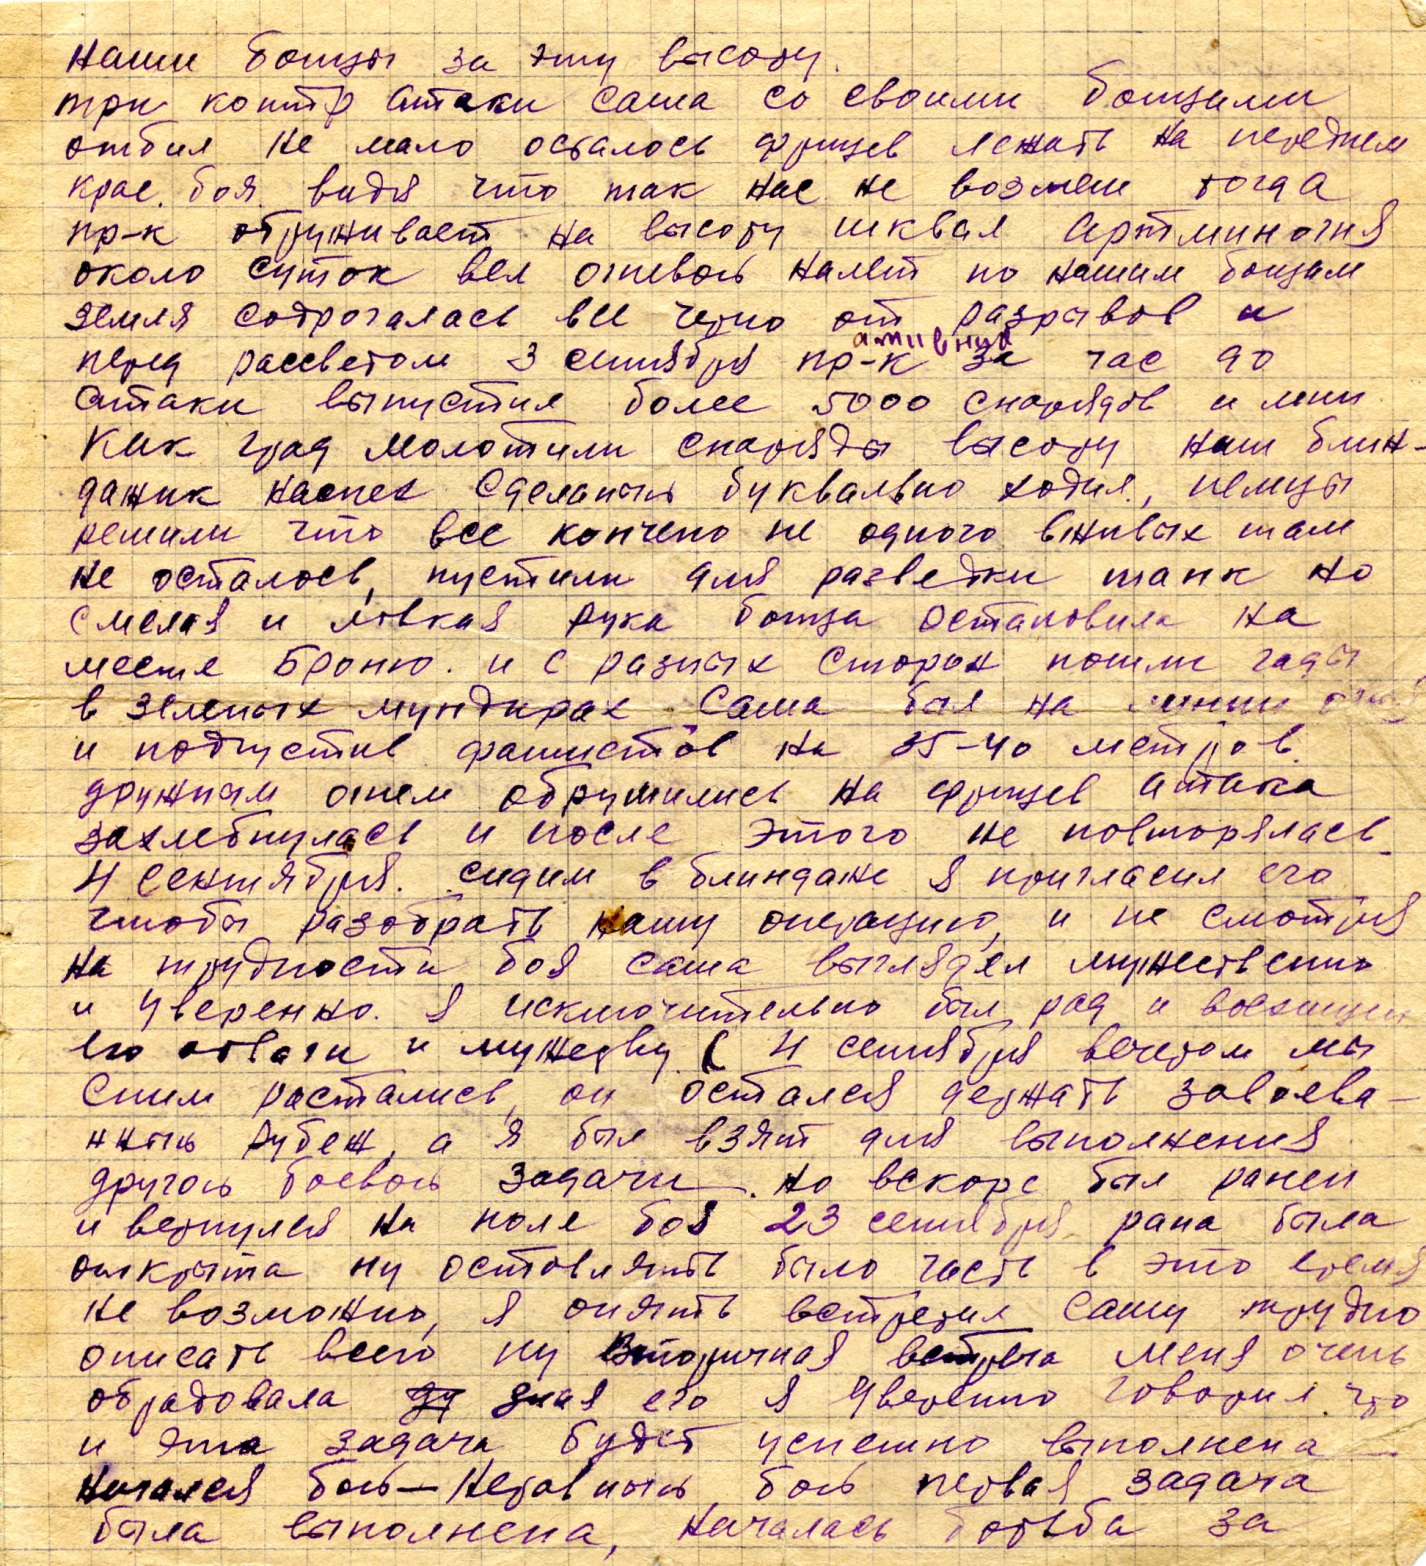 Наши боицы за эту высоту.
три контр атаки Саша со своими боицами
отбил не мало осталось фрицев лежать на переднем
крае боя видя что так нас не возмеш тогда
пр-к обрушивает на высоту шквал артминогня
около суток вел огневоь налет по нашим боицам
земля содрогалась все черно от разрывов и
перед рассветом 3 сентября пр-к за час до
ативница
атаки выпустил более 5000 снарядов и мин
Как град молотили снаряды высоту наш блин-
дажик наспех сделаныь буквально ходил, немцы
решили что все кончено не одного вживых там
не осталось, пустили для разведки танк но
смелая и ловкая рука боица остановила на
месте Броню. и с разных сторон пошли гады
в зеленых мундирах Саша был на линии огня
и подпустив фашистов на 35-40 метров
дружным огнем обрушились на фрицев атака
захлебнулась и после этого не повторялась
4 Сентября. сидим в блиндаже я пригласил его
чтобы разобрать нашу операцию, и не смотря
на трудности боя Саша выглядел мужественно
и уверенно. Я исключительно был рад и восхищен
его отваги и мужеству 4 сентября вечером мы
сним растались, он остался держать завоева-
нныь рубеж, а я был взят для выполнения
другоь боевоь задачи. но вскоре был ранен
и вернулся на поле боя 23 сентября рана была
открыта ну оставлять было часть в это время
не возможно, я опять встретил Сашу трудно
описать всего ну вторичная встреча меня очень
обрадовала зная его я уверенно говорил что
и эта задача будет успешно выполнена —
Начался боь — Неравныь боь первая задача
была выполнена, началась борьба за